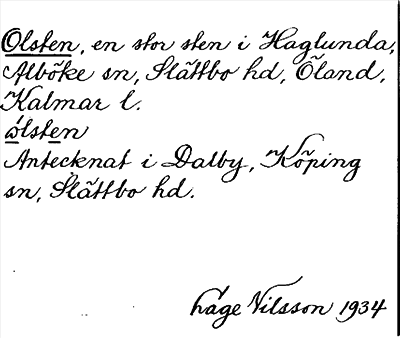 Olsten, en stor sten i Haglunda,
Alböke sn, Slättbo hd, Öland,
Kalmar l.
ώlsten
Antecknat i Dalby, Köping
sn, Slättbo hd.
håge Nilsson 1934